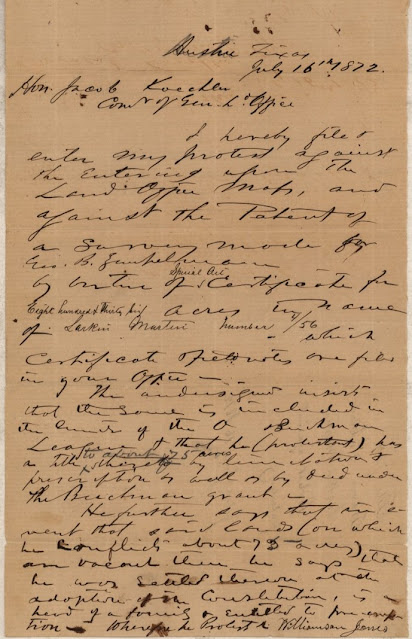 Austin Texas
July 16th 1872.
Hon. Jacob Kuechler
Com'r of Gen. Ld Office
I hereby file &
enter my protest against
the entering upon the
Land Office Maps, and
against the Patent of
a Survey made for
Geo. B. Zimpelman
Special Act
by virtue of Certificate for
Eight hundred & thirty six acres in name
of Larkin Martin number 1/56
which
Certificate & field notes are filed
in your Office —
The undersigned insists
that the same is included in
the limits of the O Buchman
League & that he (protestant) has
to about 75 acres
a title thereof by limitation &
prescription as well as by deed under
the Buchman grant —
He further says that in e-
vent that said lands (on which
he conflicts about 75 acres), that
are vacant then he says that
he was settled thereon at the
adoption of the Constitution, is a
head of a family & entitled to pre-emp-
tion — wherefore he Protests Williamson Jones